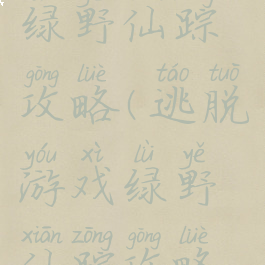 绿野仙踪
gōng lüè táo tuō
攻略(逃脱
yóu xì lǜ yě
游戏绿野
xiān zōng gōng lüè
仙踪攻略